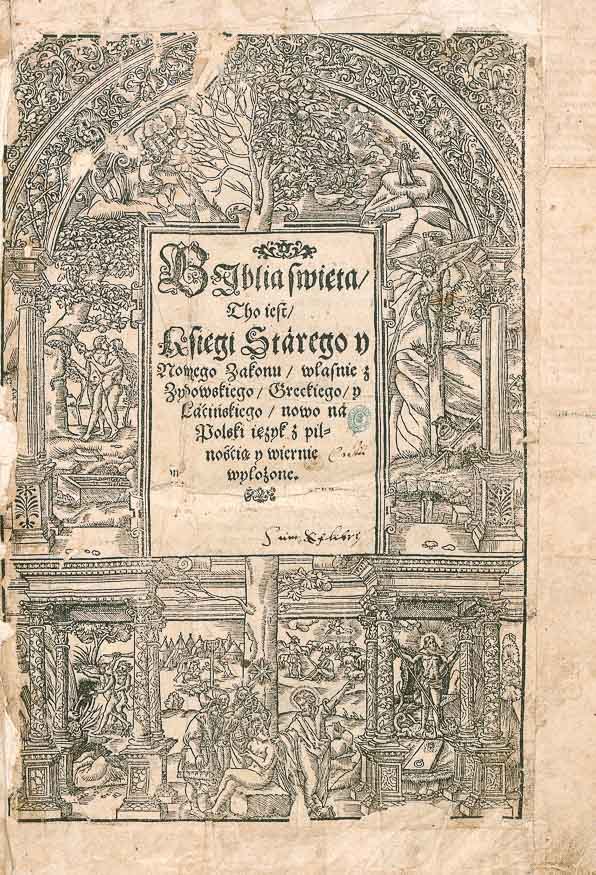 Biblia swieta/
Tho iest/
Ksiegi Stárego y
Nowego Zakonu/ własnie z
Zydowskiego/ Greckiego/ y
Láćinskiego/ nowo ná
Polski ięzyk z pil-
nośćią y wiernie
wyłożone.